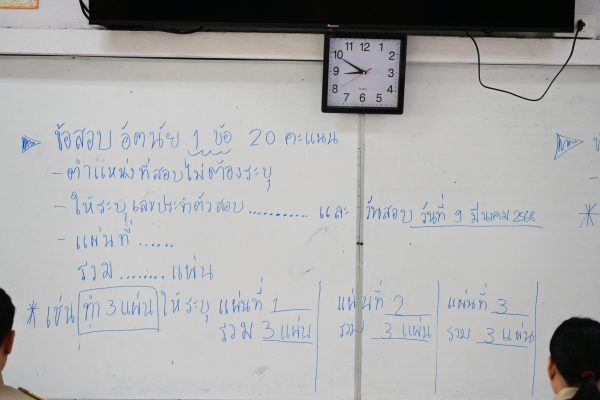 12
11
1
10
2
9
3
8
4
7
5
6
ข้อสอบ อัตนัย 1 ข้อ 20 คะแนน
- ตำแหน่งที่สอบไม่ต้องระบุ
- ให้ระบุเลขประจำตัวสอบ............ และ วันสอบ วันที่ 9 มีนาคม 2568
- แผ่นที่......
รวม........แผ่น
* เช่น ทำ 3 แผ่น ให้ระบุ แผ่นที่ 1
รวม 3 แผ่น
แผ่นที่ 2
รวม 3 แผ่น
แผ่นที่ 3
รวม 3 แผ่น